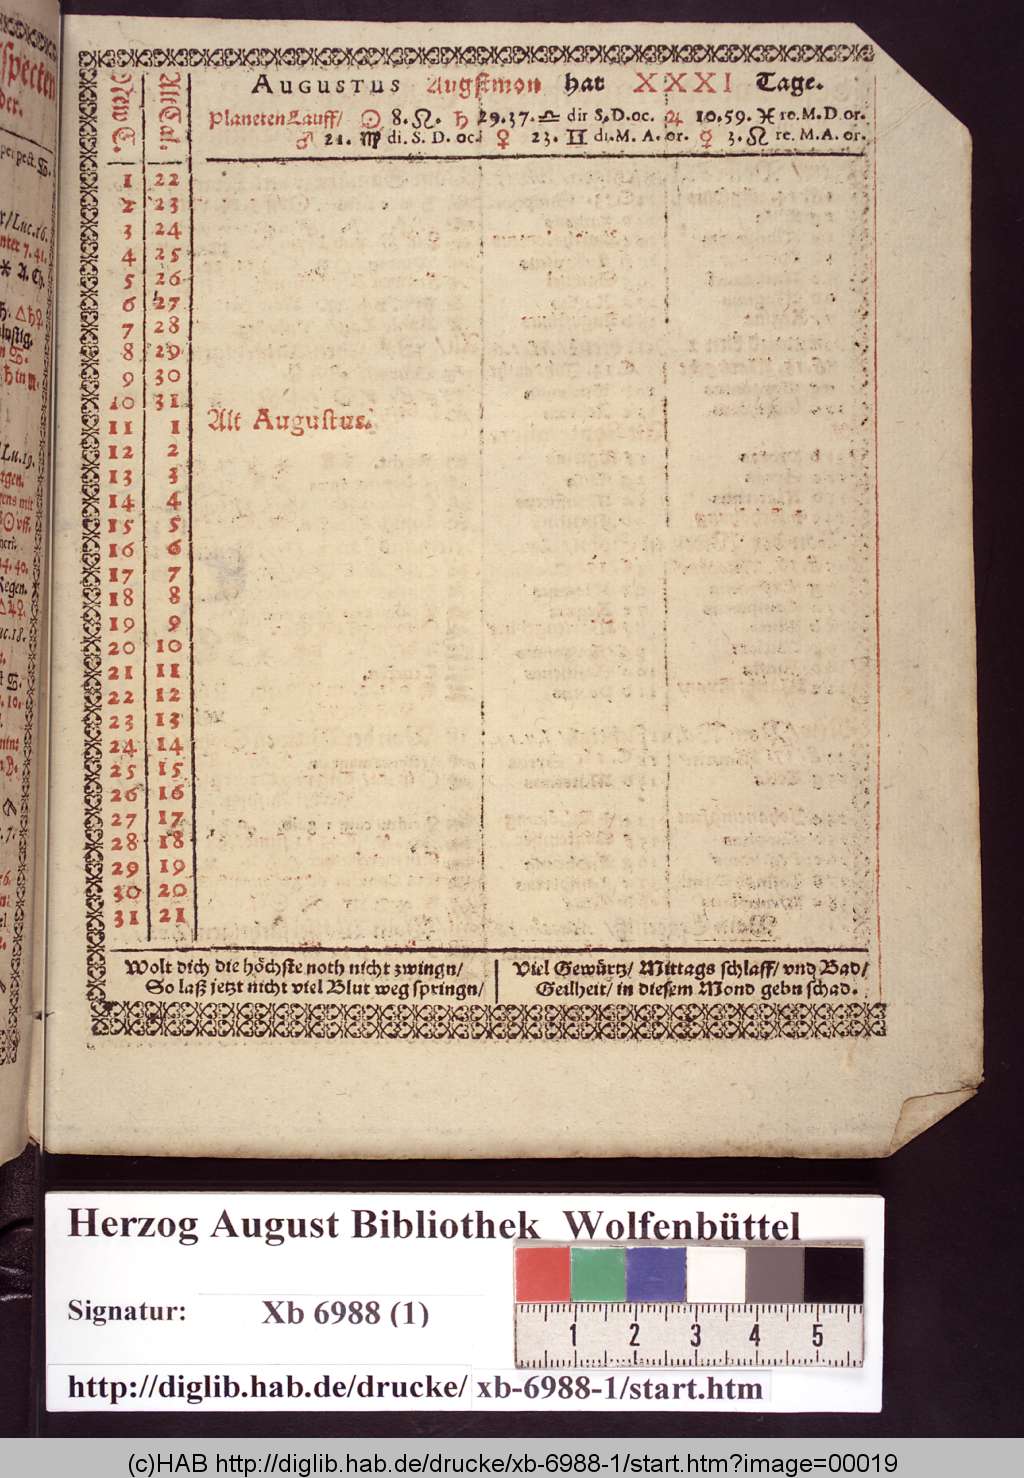 Augustus Augstmon hat XXXI Tage.
New C.
Alt Cal.
Planeten Lauff/ ☉ 8. ♌. ♄ 29.37. ♎ dir S. D. oc. ♃ 10.59. ♓ re. M. D or.
♂ 21. ♍ di. S. D. oc. ♀ 23. ♊ di. M. A. or. ☿ 3. ♌ re. M. A. or.
1 22
2 23
3 24
4 25
5 26
6 27
7 28
8 29
9 30
10 31
11 1 Alt Augustus.
12 2
13 3
14 4
15 5
16 6
17 7
18 8
19 9
20 10
21 11
22 12
23 13
24 14
25 15
26 16
27 17
28 18
29 19
30 20
31 21
Wolt dich die höchste noth nicht zwingn/
So laß jetzt nicht viel Blut weg springn/
Viel Gewürtz/ Mittags schlaff/ vnd Bad/
Geilheit/ in diesem Mond gebn schad.
Herzog August Bibliothek Wolfenbüttel
Signatur: Xb 6988 (1)
1 2 3 4 5
http://diglib.hab.de/drucke/ xb-6988-1/start.htm
(c)HAB http://diglib.hab.de/drucke/xb-6988-1/start.htm?image=00019